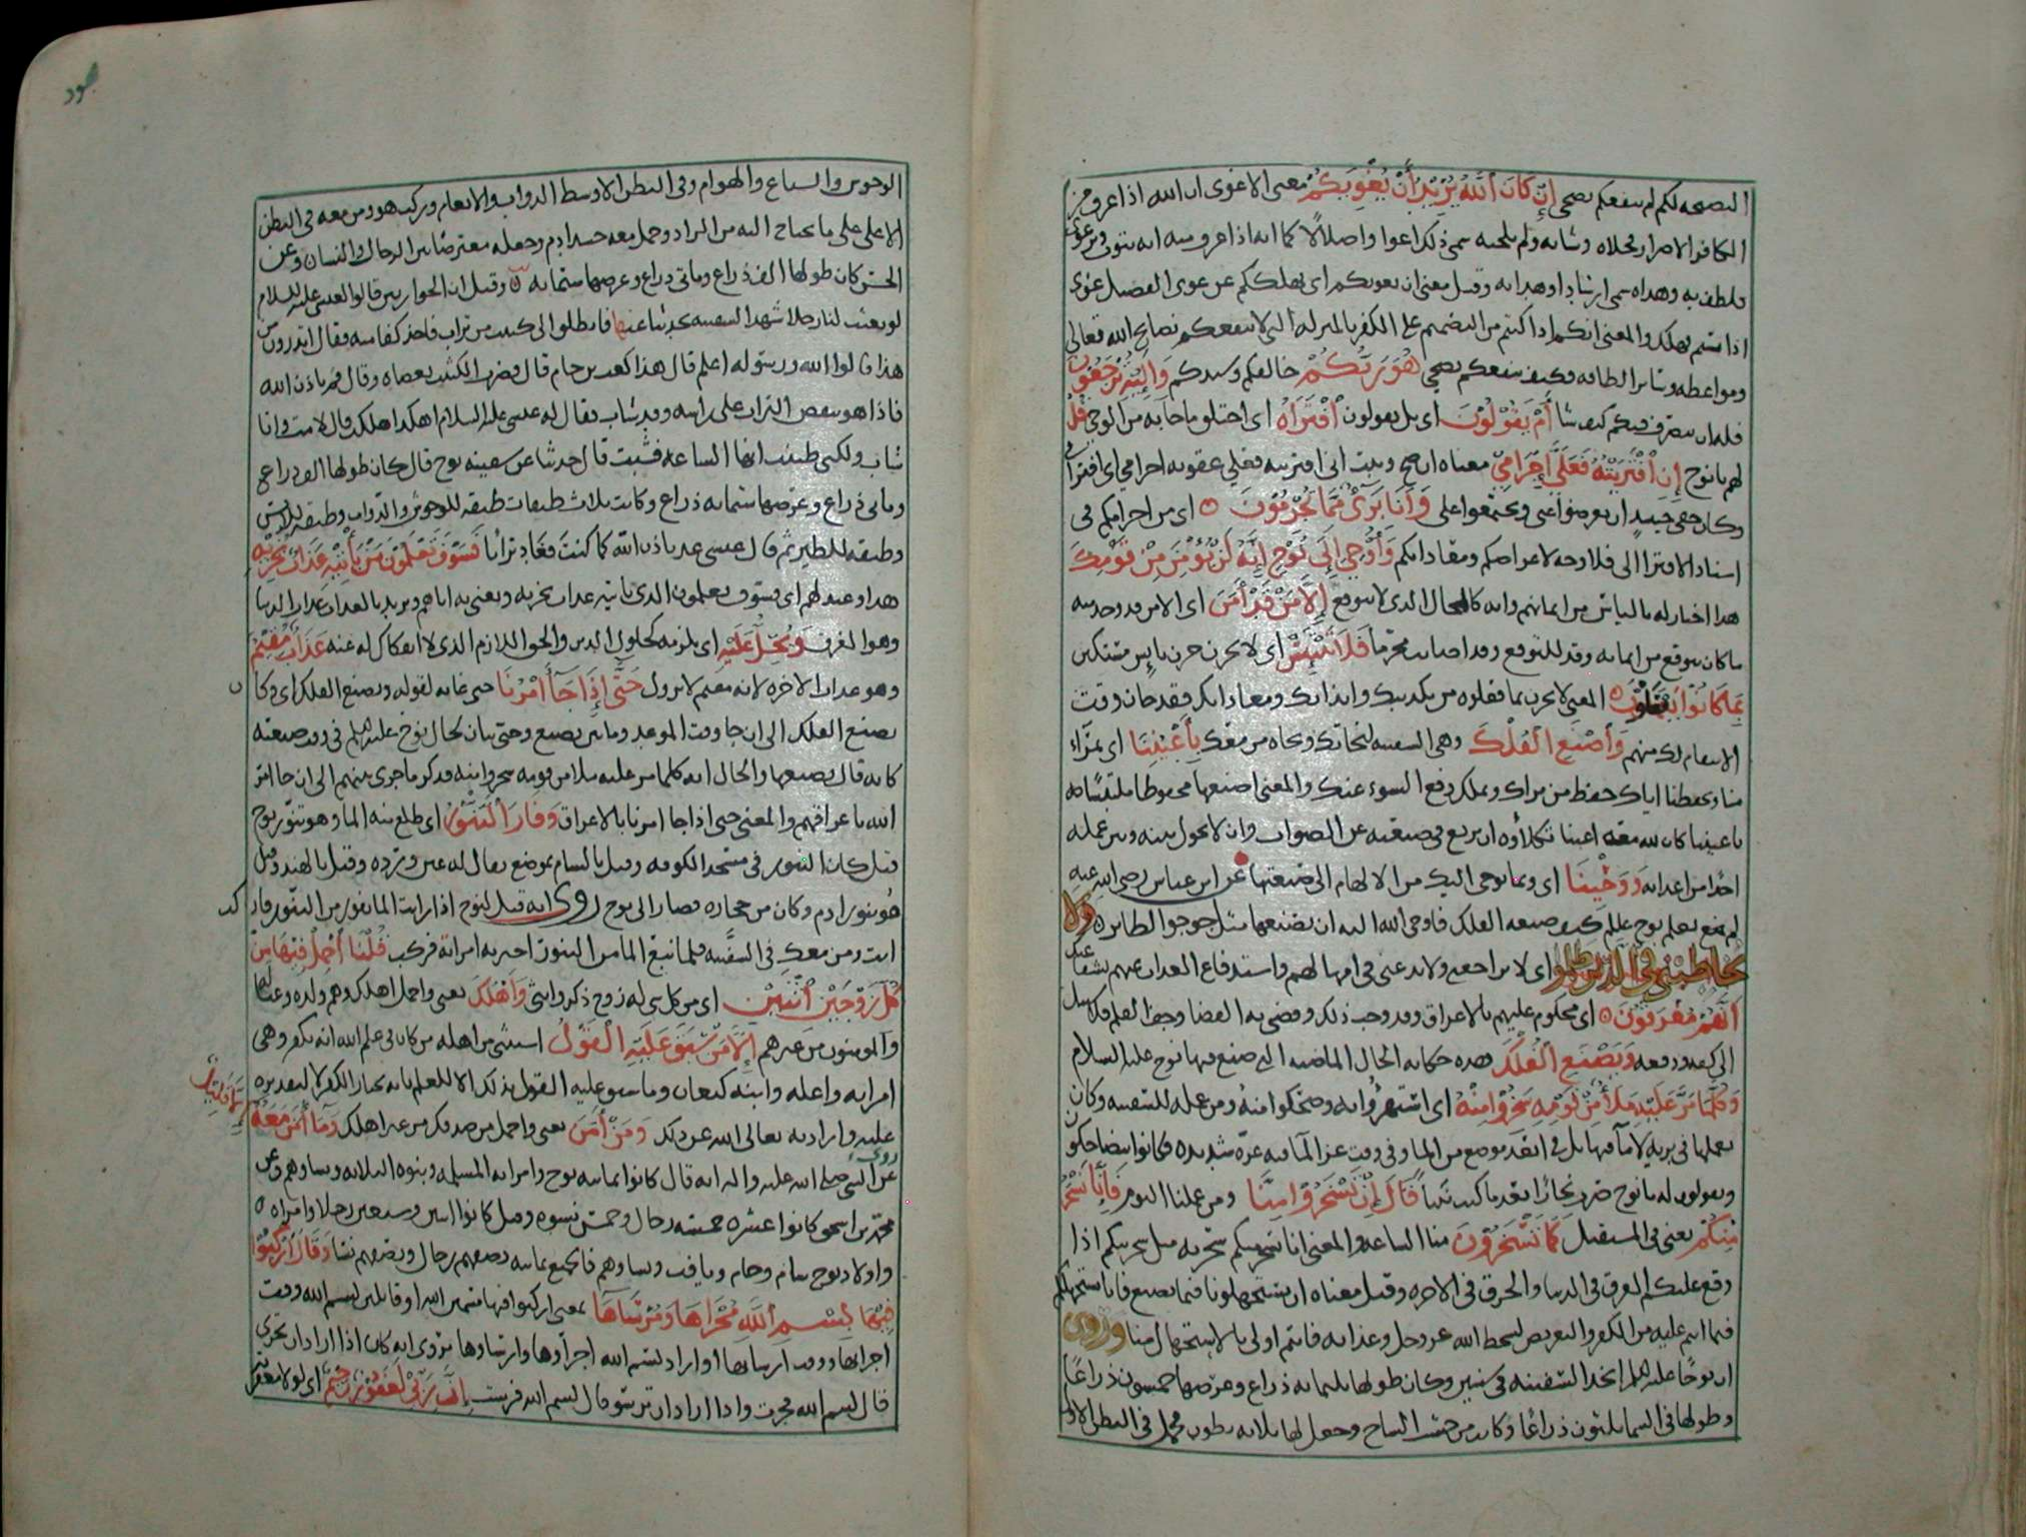 النصيحه لكم لم ينفعكم نصحي إِنْ كَانَ ٱللَّهُ يُرِيدُ أَنْ يُغْوِيَكُمْ معنى الاغوى ان الله اذا عرف من
الكافر الاصرار فخلاه وشانه ولم يلجيه سمى ذلك اغوا واضلالًا كما انه اذا عرف منه انه يتوب ويرعوى
فلطف به وهداه سمى ارشادا وهدايه وقيل معنى ان يغويكم اى يهلككم من غوى الفصيل غوى
اذا بشم فهلك والمعنى انكم اذا كنتم من التصميم على الكفر بالمنزله التى لا ينفعكم نصائح الله تعالى
ومواعظه وسائر الطافه فكيف ينفعكم نصحي هُوَ رَبُّكُمْ خالقكم وسيدكم وَإِلَيْهِ تُرْجَعُونَ
فله ان يتصرف فيكم كيف شا أَمْ يَقُولُونَ اى بل يقولون ٱفْتَرَاهُ اى اختلق ما جا به من الوحى قُلْ
لهم يا نوح إِنِ ٱفْتَرَيْتُهُ فَعَلَىَّ إِجْرَامِي معناه ان صح وثبت انى افتريته فعلى عقوبه اجرامى اى افترائى
وكان حقى حينئذٍ ان تعرضوا عنى وتجتمعوا على وَأَنَا بَرِىءٌ مِّمَّا تُجْرِمُونَ ۝ اى من اجرامكم فى
اسناد الافترا الى فلا وجه لاعراضكم ومعاداتكم وَأُوحِيَ إِلَى نُوحٍ إِنَّهُ لَنْ يُؤْمِنَ مِنْ قَوْمِكَ
هذا اخبار له بالياس من ايمانهم وانه كالمحال الذى لا يتوقع إِلَّا مَنْ قَدْ أَمَنَ اى الا من قد وجد منه
ما كان يتوقع من ايمانه وقد للتوقع وقد اصابت محزّها فَلَا تَبْتَئِسْ اى لا تحزن حزن بائس مستكين
بِمَا كَانُوا يَفْعَلُونَ ۝ المعنى لا تحزن بما فعلوه من تكذيبك وايذائك ومعاداتك فقد حان وقت
الانتقام لك منهم وَٱصْنَعِ ٱلْفُلْكَ وهى السفينه لنجاتك ونجاه من معك بِأَعْيُنِنَا اى بمرآء
منا وبحفظنا اياك حفظ من يراك ويملك دفع السوء عنك والمعنى اصنعها محفوظا ملتبسًا
باعيننا كان لله معه اعينا تكلأوه ان يزيغ فى صنعته عن الصواب وان لا يحول بينه وبين عمله
احد من اعدائه وَوَحْيِنَا اى وبما نوحى اليك من الالهام الى صنعتها عن ابن عباس رضى الله عنه
لم يعلم نوح علم كيف صنعه الفلك فاوحى الله اليه ان يصنعها مثل جوجو الطائر ۝ وَلَا
تُخَاطِبْنِي فِي ٱلَّذِينَ ظَلَمُوا اى لا تراجعنى ولا تدعنى فى امهالهم واستدفاع العذاب عنهم بشفاعتك
إِنَّهُمْ مُغْرَقُونَ ۝ اى محكوم عليهم بالاغراق وقد وجب ذلك وقضى به القضا وجف القلم فلا سبيل
الى كفه ودفعه وَيَصْنَعُ ٱلْفُلْكَ وهذه حكايه الحال الماضيه التى صنع فيها نوح عليه السلام
وَكُلَّمَا مَرَّ عَلَيْهِ مَلَأٌ مِنْ قَوْمِهِ سَخِرُوا مِنْهُ اى استهزؤا به وضحكوا منه ومن عمله للسفينه وكان
يعملها فى بريه لا ماء فيها بل فى ابعد موضع من الما وفى وقت عز الماء فيه عزّه شديده فكانوا يتضاحكون
ويقولون له يا نوح صرت نجارًا بعد ما كنت نبيًا قَالَ إِنْ تَسْخَرُوا مِنَّا ومن عملنا اليوم فَإِنَّا نَسْخَرُ
مِنْكُمْ يعنى فى المستقبل كَمَا تَسْخَرُونَ منا الساعه والمعنى انا نسخر منكم سخريه مثل سخريتكم اذا
وقع عليكم الغرق فى الدنيا والحرق فى الاخره وقيل معناه ان تستجهلونا فيما نصنع فانا نستجهلكم
فيما انتم عليه من الكفر والتعرض لسخط الله عز وجل وعذابه فانتم اولى بالاستجهال منا وروى
ان نوحًا عليه السلام اتخذ السفينه فى سنتين وكان طولها ثلثمايه ذراع وعرضها خمسون ذراعًا
وطولها فى السما ثلثون ذراعًا وكانت من خشب الساج وجعل لها ثلاثه بطون فحمل فى البطن الاول
هود
الوحوش والسباع والهوام وفى البطن الاوسط الدواب والانعام وركب هو ومن معه فى البطن
الاعلى على ما يحتاج اليه من الزاد وحمل معه جسد ادم وجعله معترضًا بين الرجال والنسا وعن
الحسن كان طولها الف ذراع ومائتى ذراع وعرضها ستمايه وقيل ان الحواريين قالوا لعيسى عليه السلام
لو بعثت لنا رجلا شهد السفينه يحدثنا عنها فانطلق الى كثيب من تراب فاخذ كفا منه فقال اتدرون من
هذا قالوا الله ورسوله اعلم قال هذا كعب بن حام قال فضرب الكثيب بعصاه وقال قم باذن الله
فاذا هو ينفض التراب على راسه وقد شاب فقال له عيسى عليه السلام اهكذا هلكت قال لا مت وانا
شاب ولكنى ظننت انها الساعه فشبت قال حدثنا عن سفينه نوح قال كان طولها الف ذراع
ومائتى ذراع وعرضها ستمايه ذراع وكانت ثلاث طبقات طبقه للوحوش والدواب وطبقه للانس
وطبقه للطير ثم قال عيسى عد باذن الله كما كنت فعاد ترابا فَسَوْفَ تَعْلَمُونَ مَنْ يَأْتِيهِ عَذَابٌ يُخْزِيهِ
هذا وعيد لهم اى فسوف تعلمون الذى ياتيه عذاب يخزيه ويعنى به اياهم ويريد بالعذاب عذاب الدنيا
وهو الغرق وَيَحِلُّ عَلَيْهِ اى يلزمه كحلول الدين والحق اللازم الذى لا انفكاك له عنه عَذَابٌ مُقِيمٌ
وهو عذاب الاخره لانه مقيم لا يزول حَتَّى إِذَا جَاءَ أَمْرُنَا حتى غايه لقوله ويصنع الفلك اى وكان
يصنع الفلك الى ان جا وقت الموعد وما بين يصنع وحتى بيان لحال نوح عليه السلم فى وقت صنعته
كانه قال يصنعها والحال انه كلما مر عليه ملا من قومه سخروا منه فذكر ما جرى بينهم الى ان جا امر
الله باغراقهم والمعنى حتى اذا جا امرنا بالاغراق وَفَارَ ٱلتَّنُّورُ اى طلع منه الما وهو تنّور نوح
قيل كان التنور فى مسجد الكوفه وقيل بالشام بموضع يقال له عين ورده وقيل بالهند وقيل
هو تنور ادم وكان من حجاره فصار الى نوح روى انه قيل لنوح اذا رايت الما يفور من التنّور فار كب
انت ومن معك فى السفينه فلما نبع الما من التنور اخبرته امراته فركب قُلْنَا ٱحْمِلْ فِيهَا مِنْ
كُلٍّ زَوْجَيْنِ ٱثْنَيْنِ اى من كل شى له زوج ذكر وانثى وَأَهْلَكَ يعنى واحمل اهلك وهم ولده وعياله
والمومنون من غيرهم إِلَّا مَنْ سَبَقَ عَلَيْهِ ٱلْقَوْلُ استثنى من اهله من كان فى علم الله انه يكفر وهى
امراته واعله وابنه كنعان وما سبق عليه القول بذلك الا للعلم بانه يختار الكفر لا لتقديره
عليه وارادته تعالى الله عن ذلك وَمَنْ أَمَنَ يعنى واحمل من صدقك من غير اهلك وَمَا أَمَنَ مَعَهُ إِلَّا قَلِيلٌ
روى عن النبى صلى الله عليه واله انه قال كانوا ثمانيه نوح وامراته المسلمه وبنوه الثلاثه ونساوهم وعن
محمد بن اسحق كانوا عشره خمسه رجال وخمس نسوه وقيل كانوا اثنين وسبعين رجلا وامراه ۝
واولاد نوح سام وحام ويافث ونساوهم فالجميع ثمانيه نصفهم رجال ونصفهم نسا وَقَالَ ٱرْكَبُوا
فِيهَا بِسْمِ ٱللَّهِ مُجْرَاهَا وَمُرْسَاهَا يعنى اركبوا فيها مسمين الله او قائلين بسم الله وقت
اجرائها ووقت ارسائها او اراد بسم الله اجراوها وارساوها يروى انه كان اذا اراد ان تجرى
قال بسم الله فجرت واذا اراد ان ترسو قال بسم الله فرست إِنَّ رَبِّي لَغَفُورٌ رَحِيمٌ اى لولا مغفرته